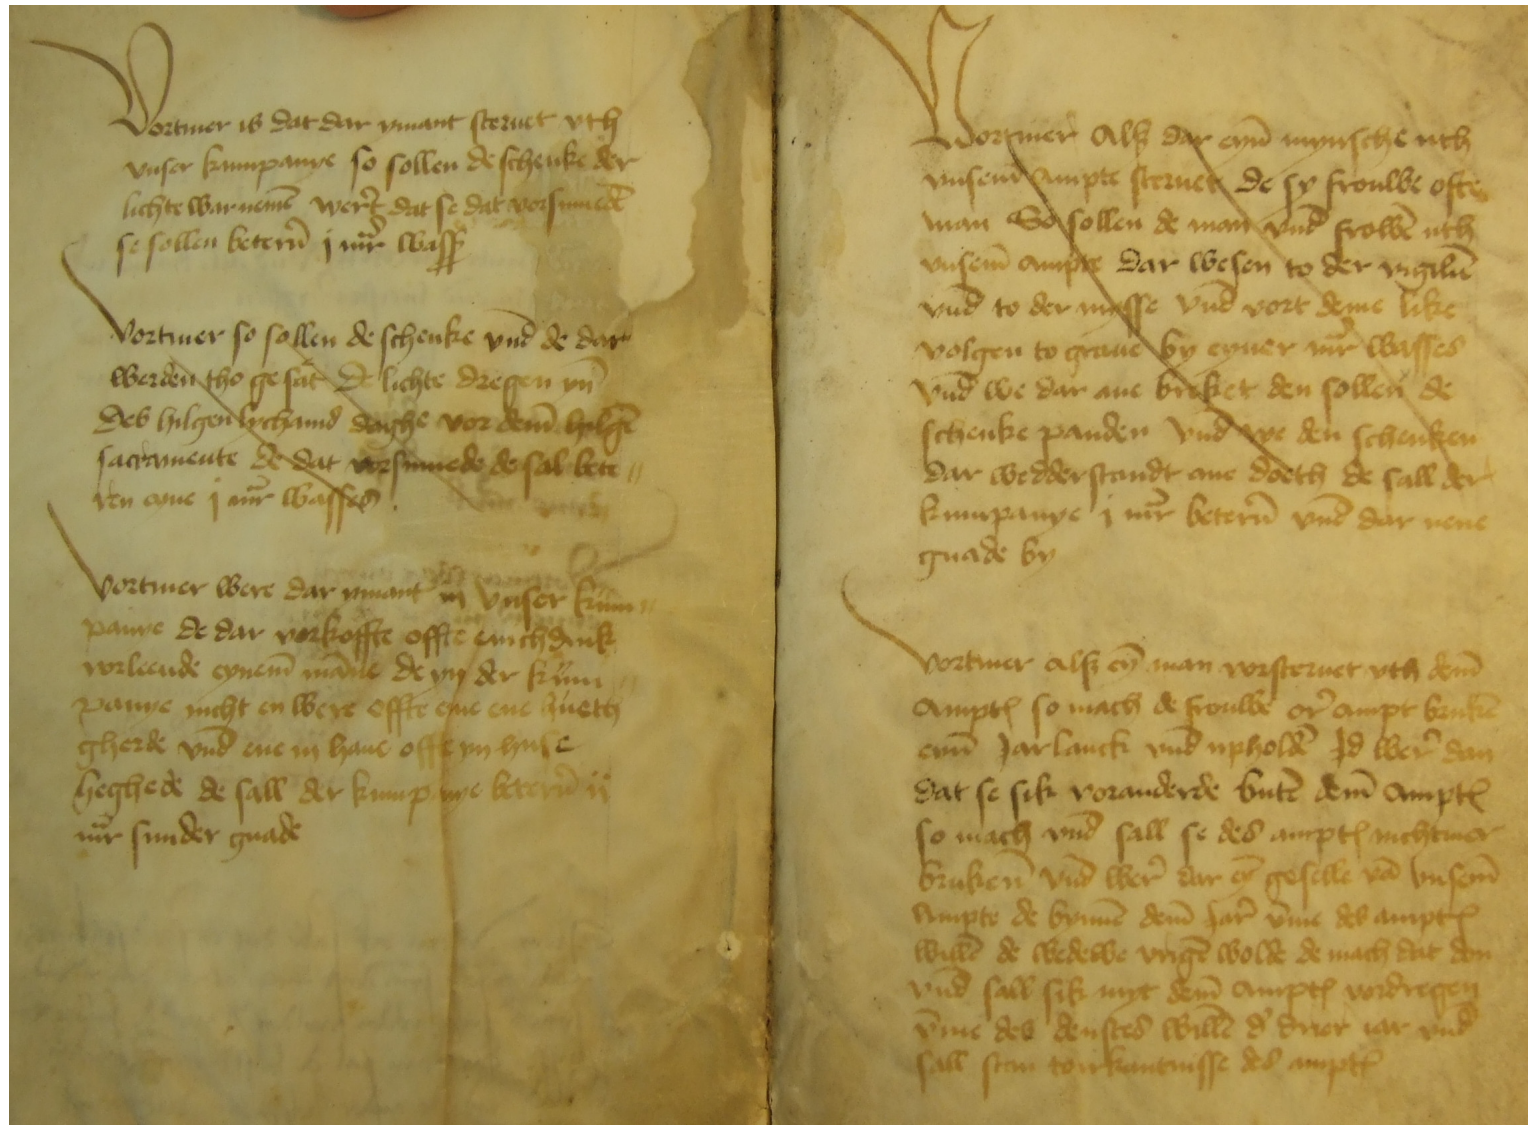 Vortmer is dat dar ymant steruet vth
vnser kumpanye so sollen de schenke der
lichte warnemē wer't dat se dat vorsumedē
se sollen betern̄ j mr̄ wass
Vortmer so sollen de schenke vnd̄ de dar
werden tho gesāt De lichte dregen yn̄
Des hilgen lychams daghe vor dem̄ hilgē
sacramente de dat vorsumede de sal bete
ren eyne j mr̄ wasses
Vortmer were dar ymant in vnser kum
panye de dar vorkoffte offte
vorleende eynem̄ māne de yn der kum
panye nicht en were offte ene ene
gherde vnd̄ ene in haue offte yn huse
heghede de sall der kumpanye betern̄ ij
mr̄ sunder gnade
Vortmer Alss dar eyn̄ mynsche uth
vnsem̄ Ampte steruet de sy frouwe ofte
man So sollen de man vnd̄ frowē uth
vnsem̄ ampte dar wesen to der vigiliē
vnd̄ to der mysse vnd̄ vort deme like
volgen to graue by eyner mr̄ wasses
vnd̄ we dar ane breket den sollen de
schenke panden vnd̄ we den schenken
dar wedderstandt ane doeth de sall der
kumpanye j mr̄ betern̄ vnd̄ dar nene
gnade by
Vortmer alss eȳ man vorsteruet vth dem̄
Ampt so mach de frouwe or' ampt brukē
eyn̄ Jar lanck vnd̄ upholdē Jd wer' dan
dat se sik voranderde butē dem̄ Ampt
so mach vnd̄ sall se des ampt nichtmer
brukēn vnd̄ wer' dar eȳ geselle vā vnsem̄
Ampte de bynnē dem̄ Jar' v̄me des ampt
willē de wedewe vrigē wolde de mach dat don
vnd̄ sall sik myt dem̄ Ampt vordregen
v̄me des denstes willē d' drier iar vnd̄
sall stan to irkantnisse des ampt